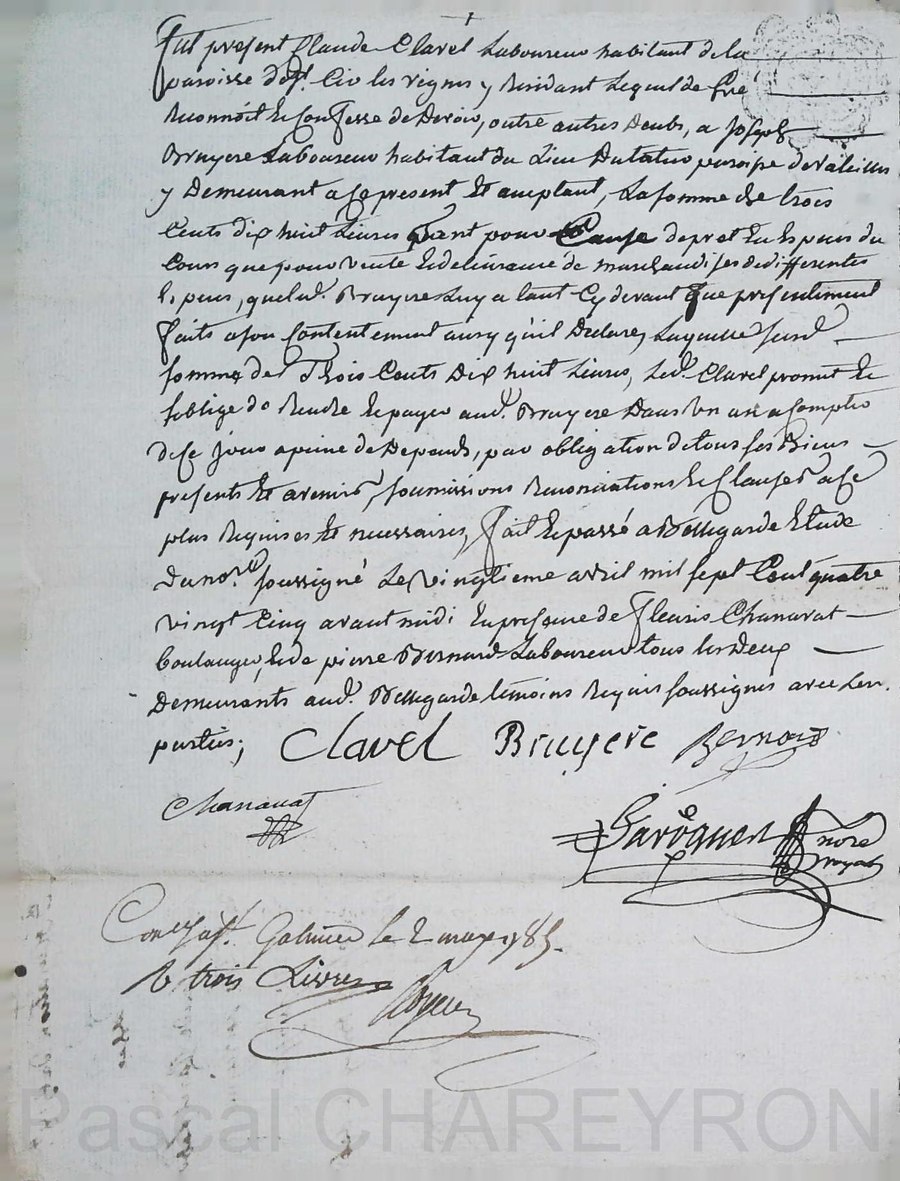 Fut présent Claude Clavel Laboureur habitant de la
paroisse de St. Cir les vignes y Résidant Lequel de Gré
Reconnoit et Confesse de Devoir, outre autres Deubs, a Joseph
Bruyere Laboureur habitant du Lieu paroisse de Valeilles
y Demeurant a ce present et acceptant, La somme de trois
Cents dix huit Livres tant pour Cause de pret en Especes du
Cours que pour vente et delivrance de marchandises de differentes
Especes, que led. Bruyere Luy a tant Cy devant que presentement
faits a son Contentement ainsy qu'il Declare, Laquelle susd.
somme de Trois Cents Dix huit Livres, Led. Clavel promet et
s'oblige de Rendre et payer aud. Bruyere Dans Un an a Compter
de Ce jour a peine de Depends, par obligation de tous ses Biens
presents et avenirs, soumissions Renonciations et Clauses a Ce
plus Requises et necessaires, fait et passé a Bellegarde Etude
du nore. soussigné Le vingtieme avril mil sept Cent quatre
vingt Cinq avant midi En presence de Fleuris Chanavat
boulanger, et de pierre Bernard Laboureur tous les Deux
Demeurants aud. Bellegarde temoins Requis soussignés avec Les
parties;
Clavel Bruyere Bernard
Chanavat
nore
royal
Galmier le 2 may 1785.
R trois Livres
Pascal CHAREYRON